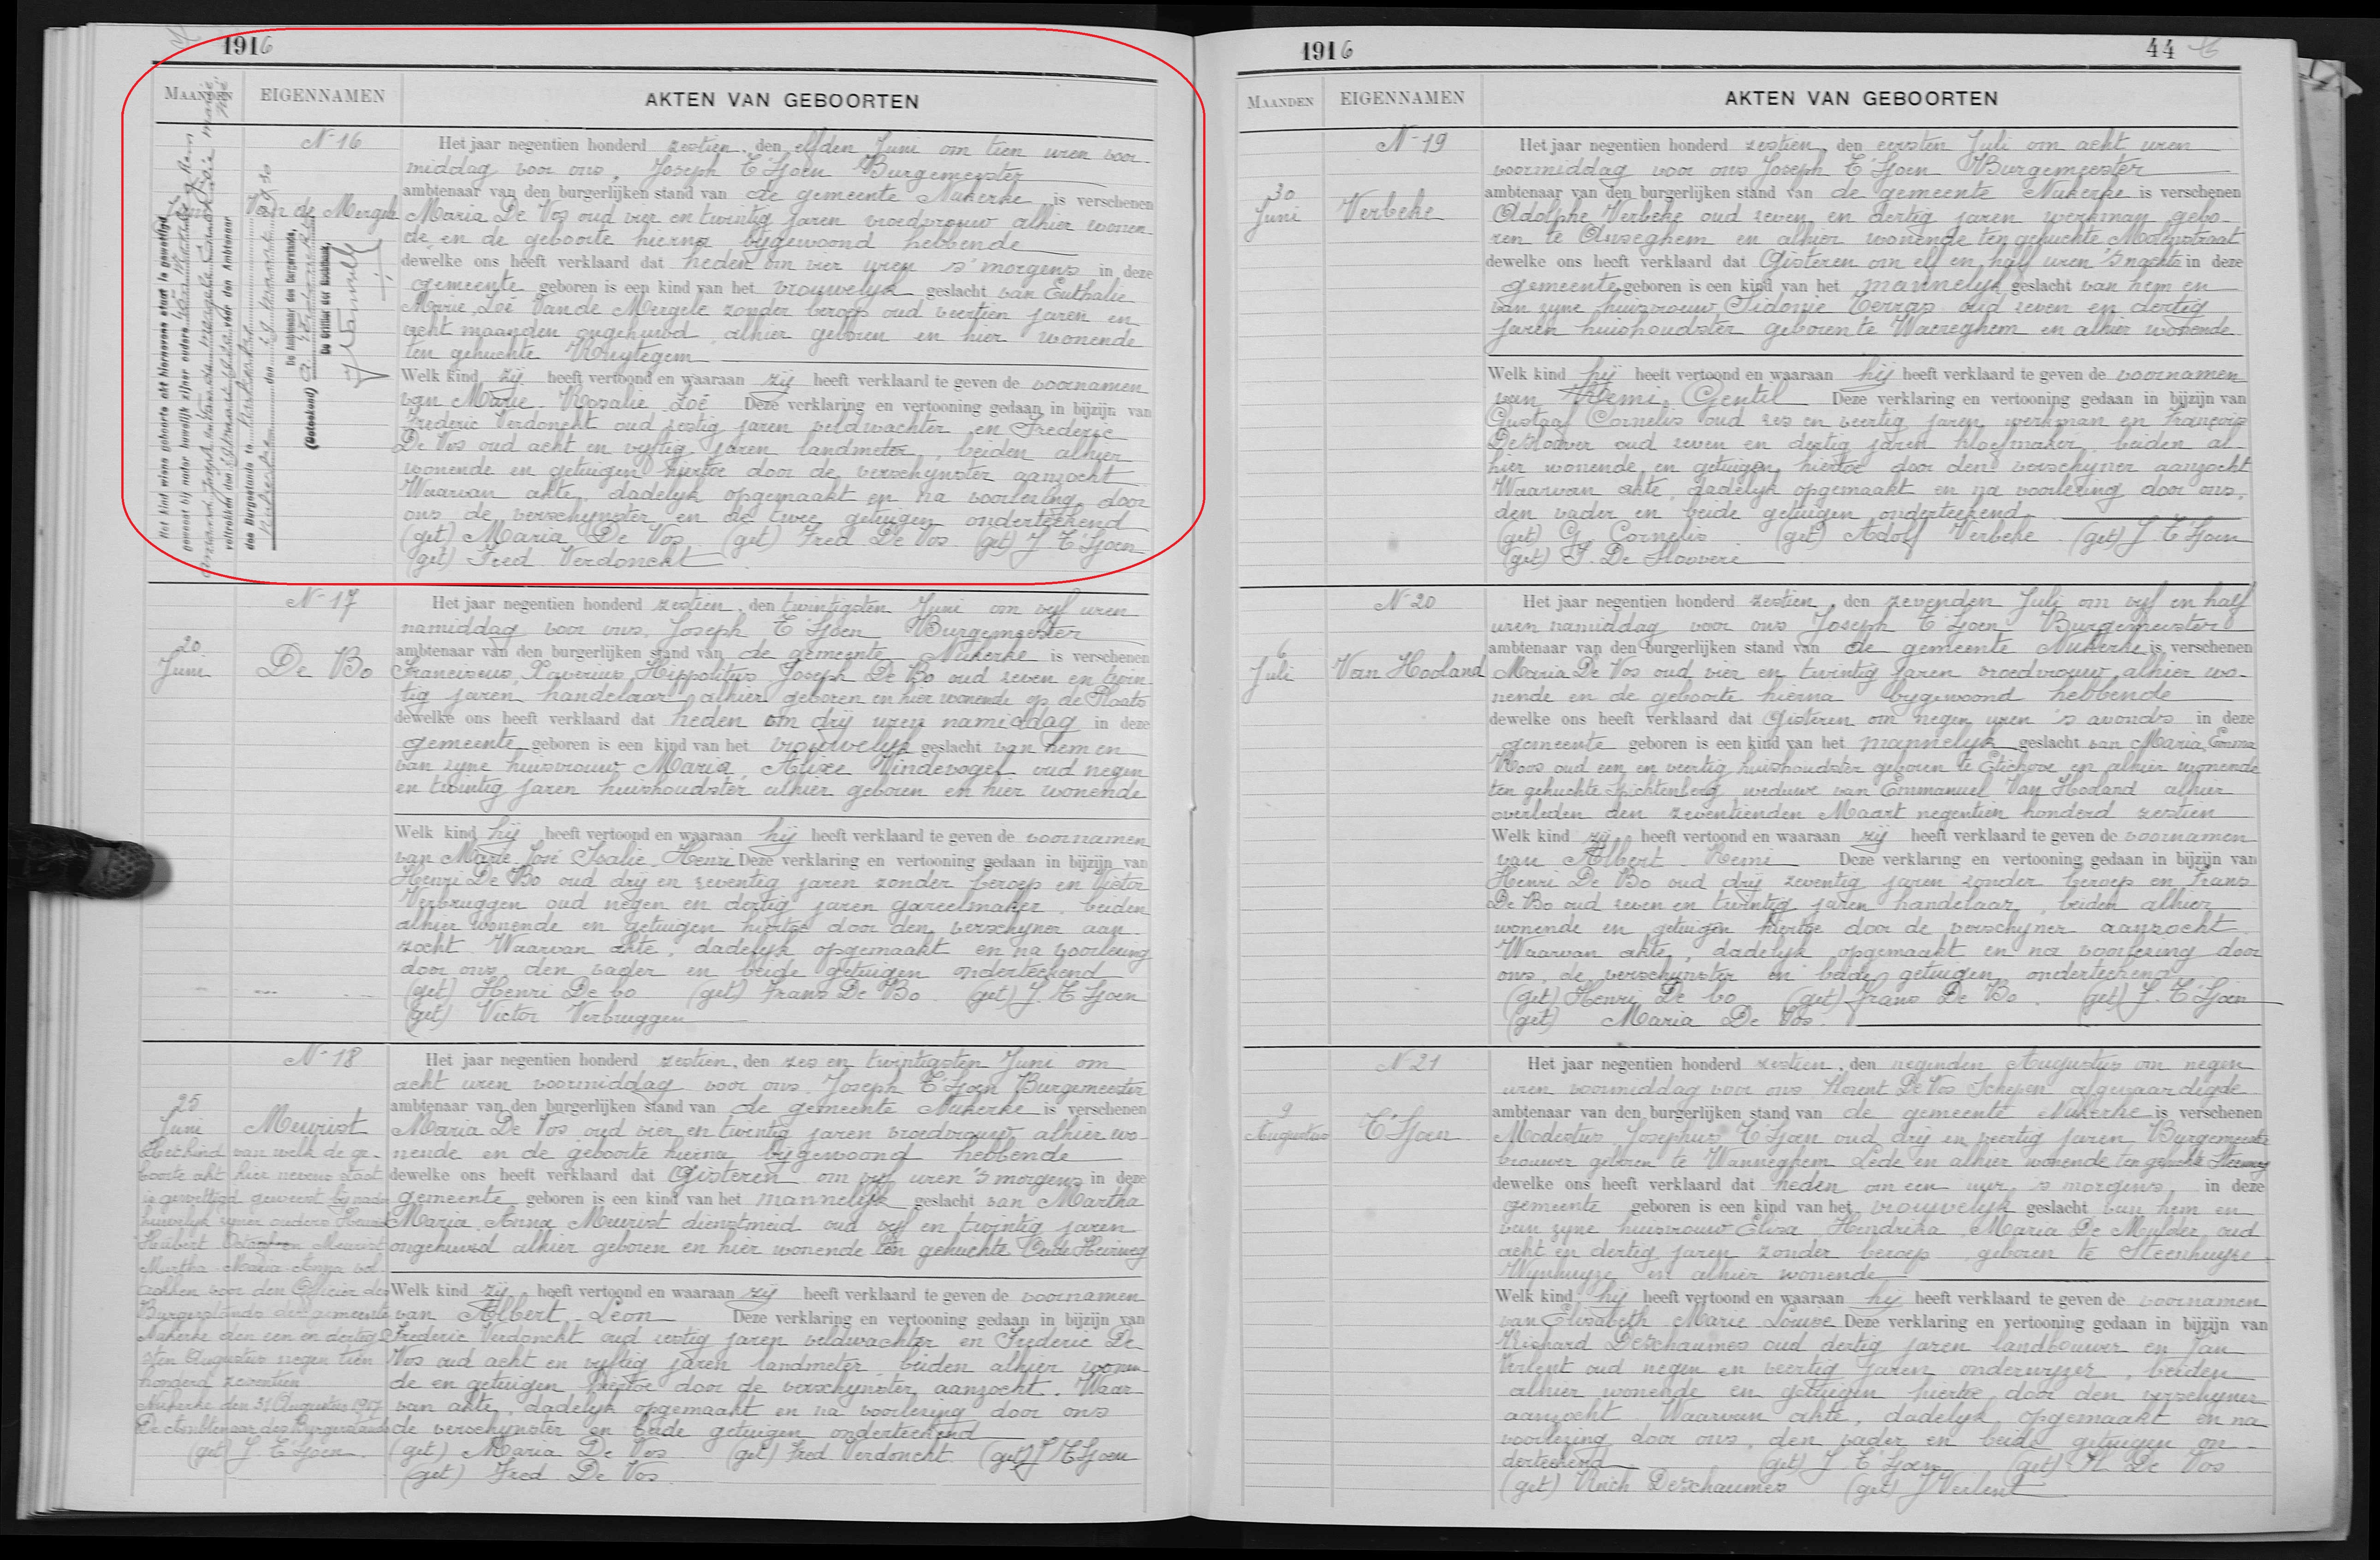 1916
MAANDEN
EIGENNAMEN
AKTEN VAN GEBOORTEN
N-16
Van de Mergele
Het kind wiens geboorte akt hiernevens staat is gewettigd
geweest bij nader huwelijk zijner ouders
voltrokken den voor den Ambtenaar
des Burgerstands te
den
De Ambtenaar des Burgerstands,
(Geteekend)
De Griffier der Rechtbank,
Het jaar negentien honderd zestien, den elfden Juni om tien uren voor-
middag voor ons, Joseph T'Sjoen Burgemeester
ambtenaar van den burgerlijken stand van de gemeente Nukerke is verschenen
Maria De Vos oud vier en twintig jaren vroedvrouw alhier wonen-
de en de geboorte hierna bijgewoond hebbende
dewelke ons heeft verklaard dat heden om vier uren 's morgens in deze
gemeente geboren is een kind van het vrouwelijk geslacht van Euthalie
Marie Zoé Van de Mergele zonder beroep oud veertien jaren en
acht maanden ongehuwd alhier geboren en hier wonende
ten gehuchte Kruytegem
Welk kind zij heeft vertoond en waaraan zij heeft verklaard te geven de voornamen
van Marie Rosalie Zoé Deze verklaring en vertooning gedaan in bijzijn van
Frederic Verdonckt oud zestig jaren veldwachter en Frederic
De Vos oud acht en vijftig jaren landmeter, beiden alhier
wonende en getuigen hiertoe door de verschynster aanzocht
Waarvan akte, dadelyk opgemaakt en na voorlezing door
ons de verschynster en de twee getuigen onderteekend
(get) Maria De Vos (get) Fred De Vos (get) J T'Sjoen
(get) Fred Verdonckt
N-17
20
Juni
De Bo
Het jaar negentien honderd zestien, den twintigsten Juni om vyf uren
namiddag voor ons, Joseph T'Sjoen Burgemeester
ambtenaar van den burgerlijken stand van de gemeente Nukerke is verschenen
Franciscus Xaverius Hippolitus Joseph De Bo oud zeven en twin-
tig jaren handelaar alhier geboren en hier wonende op de Plaats
dewelke ons heeft verklaard dat heden om dry uren namiddag in deze
gemeente geboren is een kind van het vrouwelyk geslacht van hem en
van zyne huisvrouw Maria Alixe Vindevogel oud negen
en twintig jaren huishoudster alhier geboren en hier wonende
Welk kind hij heeft vertoond en waaraan hij heeft verklaard te geven de voornamen
van Marie José Isalie Henri Deze verklaring en vertooning gedaan in bijzijn van
Henri De Bo oud dry en zeventig jaren zonder beroep en Victor
Verbruggen oud negen en dertig jaren gareelmaker, beiden
alhier wonende en getuigen hiertoe door den verschyner aan-
zocht Waarvan akte, dadelyk opgemaakt en na voorlezing
door ons, den vader en beide getuigen onderteekend
(get) Henri De bo (get) Frans De Bo (get) J. T'Sjoen
(get) Victor Verbruggen
N-18
25
Juni
Meurist
Het kind van welk de ge-
boorte akt hier nevens staat
is gewettigd geweest by nader
huwelyk zyner ouders
Hubert Meurist
Martha Maria Anna vol-
trokken voor den Officier des
Burgerstands der gemeente
Nukerke den een en dertig-
sten Augustus negen tien
honderd zeventien
Nukerke den 31 Augustus 1917
De Ambtenaar des Burgerstands
(get) J. T'Sjoen
Het jaar negentien honderd zestien, den zes en twintigsten Juni om
acht uren voormiddag voor ons, Joseph T'Sjoen Burgemeester
ambtenaar van den burgerlijken stand van de gemeente Nukerke is verschenen
Maria De Vos oud vier en twintig jaren vroedvrouw alhier wo-
nende en de geboorte hierna bygewoond hebbende
dewelke ons heeft verklaard dat Gisteren om vyf uren 's morgens in deze
gemeente geboren is een kind van het mannelyk geslacht van Martha
Maria Anna Meurist dienstmeid oud vyf en twintig jaren
ongehuwd alhier geboren en hier wonende ten gehuchte Oude Heirweg
Welk kind zij heeft vertoond en waaraan zij heeft verklaard te geven de voornamen
van Albert Leon Deze verklaring en vertooning gedaan in bijzijn van
Frederic Verdonckt oud zestig jaren veldwachter en Frederic De
Vos oud acht en vyftig jaren landmeter beiden alhier wonen-
de en getuigen hiertoe door de verschynster aanzocht. Waar-
van akte, dadelyk opgemaakt en na voorlezing door ons
de verschynster en beide getuigen onderteekend
(get) Maria De Vos (get) Fred Verdonckt (get) J T'Sjoen
(get) Fred De Vos
1916
44
MAANDEN
EIGENNAMEN
AKTEN VAN GEBOORTEN
N-19
30
Juni
Verbeke
Het jaar negentien honderd zestien, den eersten Juli om acht uren
voormiddag voor ons Joseph T'Sjoen Burgemeester
ambtenaar van den burgerlijken stand van de gemeente Nukerke is verschenen
Adolphe Verbeke oud zeven en dertig jaren werkman gebo-
ren te Anseghem en alhier wonende ten gehuchte Molenstraat
dewelke ons heeft verklaard dat Gisteren om elf en half uren 's nachts in deze
gemeente geboren is een kind van het mannelyk geslacht van hem en
van zyne huisvrouw Sidonie Verras oud zeven en dertig
jaren huishoudster geboren te Waereghem en alhier wonende
Welk kind hij heeft vertoond en waaraan hij heeft verklaard te geven de voornamen
van Remi Gentil Deze verklaring en vertooning gedaan in bijzijn van
Gustaaf Cornelis oud zes en veertig jaren werkman en François
De Hoover oud zeven en dertig jaren kloefmaker beiden al-
hier wonende en getuigen hiertoe door den verschyner aanzocht
Waarvan akte, dadelyk opgemaakt en na voorlezing door ons,
den vader en beide getuigen onderteekend
(get) G. Cornelis (get) Adolf Verbeke (get) J. T'Sjoen
(get) F. De Hoovere
N-20
6
Juli
Van Hooland
Het jaar negentien honderd zestien, den zevenden Juli om vyf en half
uren namiddag voor ons Joseph T'Sjoen Burgemeester
ambtenaar van den burgerlijken stand van de gemeente Nukerke is verschenen
Maria De Vos oud vier en twintig jaren vroedvrouw alhier wo-
nende en de geboorte hierna bygewoond hebbende
dewelke ons heeft verklaard dat Gisteren om negen uren 's avonds in deze
gemeente geboren is een kind van het mannelyk geslacht van Maria Emma
Roos oud een en veertig huishoudster geboren te Etichove en alhier wonende
ten gehuchte Spichtenberg weduwe van Emmanuel Van Hooland alhier
overleden den zeventienden Maart negentien honderd zestien
Welk kind zij heeft vertoond en waaraan zij heeft verklaard te geven de voornamen
van Albert Remi Deze verklaring en vertooning gedaan in bijzijn van
Henri De Bo oud dry zeventig jaren zonder beroep en Frans
De Bo oud zeven en twintig jaren handelaar, beiden alhier
wonende en getuigen hiertoe door de verschyner aanzocht
Waarvan akte, dadelyk opgemaakt en na voorlezing door
ons, de verschynster en beide getuigen onderteekend
(get) Henri De bo (get) Frans De Bo. (get) J. T'Sjoen
(get) Maria De Vos.
N-21
9
Augustus
T'Sjoen
Het jaar negentien honderd zestien, den negenden Augustus om negen
uren voormiddag voor ons Florent De Vos Schepen afgevaardigde
ambtenaar van den burgerlijken stand van de gemeente Nukerke is verschenen
Modestus Josephus T'Sjoen oud dry en veertig jaren, Burgemeester
brouwer geboren te Wanneghem Lede en alhier wonende ten gehuchte Steenweg
dewelke ons heeft verklaard dat heden om een uur 's morgens in deze
gemeente geboren is een kind van het vrouwelyk geslacht van hem en
van zyne huisvrouw Eliza Hendrika Maria De Mulder oud
acht en dertig jaren zonder beroep geboren te Steenhuyze-
Wynhuyze en alhier wonende
Welk kind hij heeft vertoond en waaraan hij heeft verklaard te geven de voornamen
van Elisabeth Marie Louise Deze verklaring en vertooning gedaan in bijzijn van
Richard Deschaumes oud dertig jaren landbouwer en Jan
Verlent oud negen en veertig jaren onderwyzer, beiden
alhier wonende en getuigen hiertoe door den verschyner
aanzocht Waarvan akte, dadelyk opgemaakt en na
voorlezing door ons, den vader en beide getuigen on-
derteekend (get) J. T'Sjoen (get) Fl De Vos
(get) Rich Deschaumes (get) J Verlent